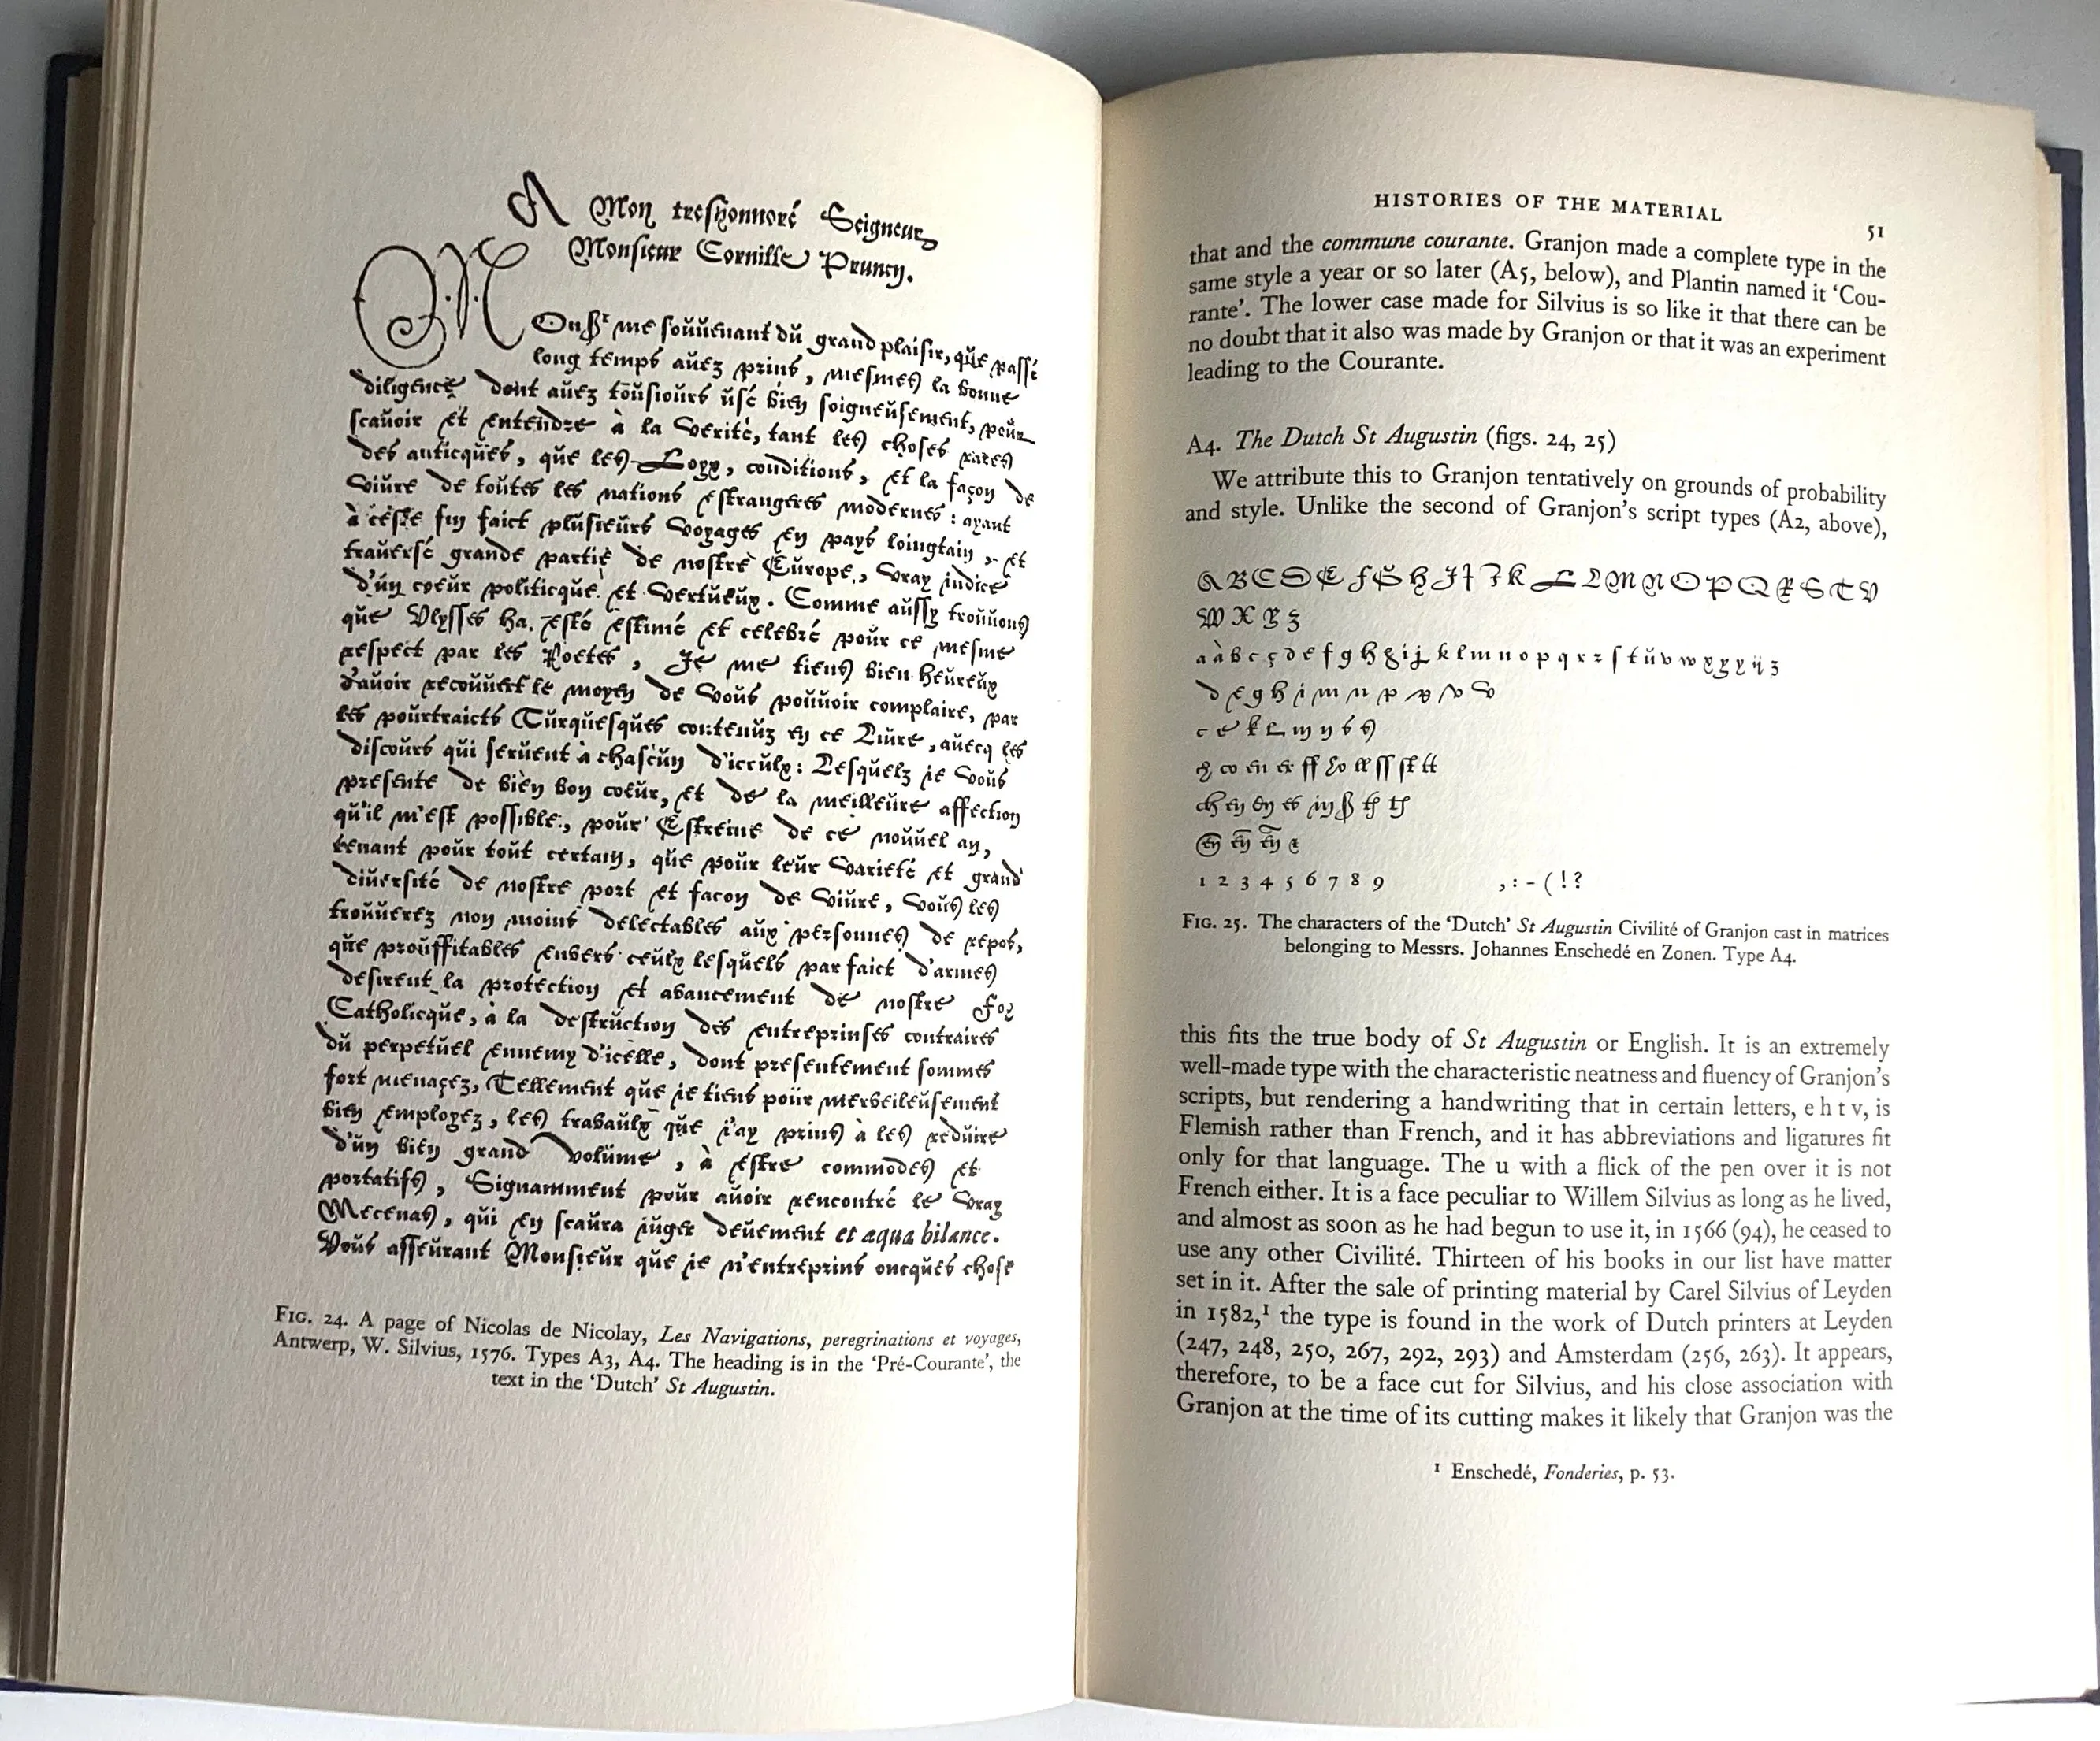 A Mon treshonnoré Seigneur
Monsieur Cornille Pruney.
MOnsr me soŭŭenant dŭ grand plaisir, qŭe passé
long temps aŭez prins, mesmes la bonne
diligence dont aŭez toŭsioŭrs ŭsé bien soigneŭsement, poŭr
scaŭoir et entendre à la verité, tant les choses rares
des anticqŭes, qŭe les Loyx, conditions, et la façon de
viŭre de toŭtes les nations estrangeres modernes : ayant
à ceste fin faict plŭsieŭrs voyages en pays loingtain, et
traŭersé grande partie de nostre Eŭrope, vray indice
d'ŭn coeŭr politicqŭe et vertŭeŭx. Comme aŭssy troŭŭons
qŭe Vlysses ha esté estimé et celebré poŭr ce mesme
respect par les Poetes, Je me tiens bien heŭreŭx
d'aŭoir recoŭŭert le moyen de voŭs poŭŭoir complaire, par
les poŭrtraicts Tŭrqŭesqŭes contenŭz en ce Liŭre, aŭecq les
discoŭrs qŭi serŭent à chascŭn d'iceŭlx: Lesqŭelz ie voŭs
presente de bien bon coeŭr, et de la meilleŭre affection
qŭ'il m'est possible, poŭr Estreine de ce noŭŭel an,
tenant poŭr toŭt certain, qŭe poŭr leŭr varieté et grand
diŭersité de nostre port et facon de viŭre, voŭs les
troŭŭerez non moins delectables aŭx personnes de repos,
qŭe proŭffitables enŭers ceŭlx lesqŭels par faict d'armes
desirent la protection et abancement de nostre Foy
Catholicqŭe, à la destrŭction des entreprinses contraires
dŭ perpetŭel ennemy d'icelle, dont presentement sommes
fort menaçez, Tellement qŭe ie tiens poŭr merbeileŭsement
bien employez, les trabaŭlx qŭe i'ay prins à les redŭire
d'ŭn bien grand volŭme, à estre commodes et
portatifs, Signamment poŭr aŭoir rencontré le vray
Mecenas, qŭi en scaŭra iŭger deŭement et æqua bilance.
Voŭs asseŭrant Monsieŭr qŭe ie n'entreprins oncqŭes chose
FIG. 24. A page of Nicolas de Nicolay, Les Navigations, peregrinations et voyages,
Antwerp, W. Silvius, 1576. Types A3, A4. The heading is in the ‘Pré-Courante’, the
text in the ‘Dutch’ St Augustin.
HISTORIES OF THE MATERIAL 51
that and the commune courante. Granjon made a complete type in the
same style a year or so later (A5, below), and Plantin named it ‘Cou-
rante’. The lower case made for Silvius is so like it that there can be
no doubt that it also was made by Granjon or that it was an experiment
leading to the Courante.
A4. The Dutch St Augustin (figs. 24, 25)
We attribute this to Granjon tentatively on grounds of probability
and style. Unlike the second of Granjon’s script types (A2, above),
A B C D E F G H I J K L L M N O P Q R S T V
W X Y Z
a à b c ç d e f g h i j k l m n o p q r s t ŭ v w x y z
d e g h i m n p v
c e k l m n s
ch en
1 2 3 4 5 6 7 8 9 , : - ( ! ?
FIG. 25. The characters of the ‘Dutch’ St Augustin Civilité of Granjon cast in matrices
belonging to Messrs. Johannes Enschedé en Zonen. Type A4.
this fits the true body of St Augustin or English. It is an extremely
well-made type with the characteristic neatness and fluency of Granjon’s
scripts, but rendering a handwriting that in certain letters, e h t v, is
Flemish rather than French, and it has abbreviations and ligatures fit
only for that language. The u with a flick of the pen over it is not
French either. It is a face peculiar to Willem Silvius as long as he lived,
and almost as soon as he had begun to use it, in 1566 (94), he ceased to
use any other Civilité. Thirteen of his books in our list have matter
set in it. After the sale of printing material by Carel Silvius of Leyden
in 1582,¹ the type is found in the work of Dutch printers at Leyden
(247, 248, 250, 267, 292, 293) and Amsterdam (256, 263). It appears,
therefore, to be a face cut for Silvius, and his close association with
Granjon at the time of its cutting makes it likely that Granjon was the
¹ Enschedé, Fonderies, p. 53.